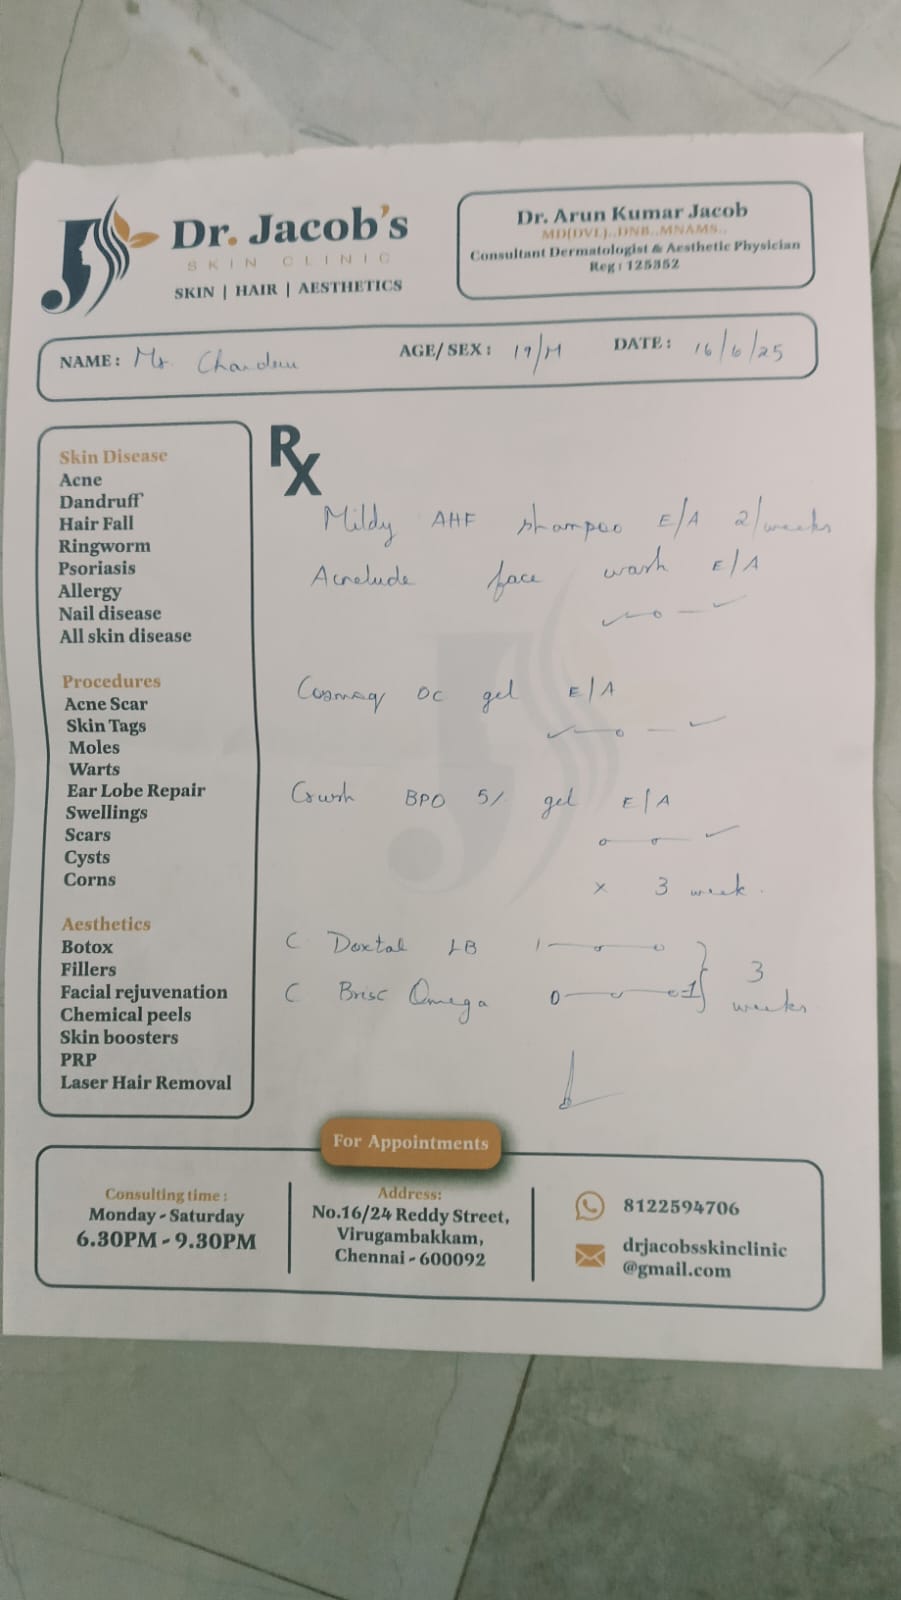 Dr. Jacob's
SKIN CLINIC
SKIN | HAIR | AESTHETICS
Dr. Arun Kumar Jacob
MD(DVL)., DNB., MNAMS.,
Consultant Dermatologist & Aesthetic Physician
Reg : 125352
NAME : Mr.
AGE/ SEX : 19/M
DATE : 16/6/25
Skin Disease
Acne
Dandruff
Hair Fall
Ringworm
Psoriasis
Allergy
Nail disease
All skin disease
Procedures
Acne Scar
Skin Tags
Moles
Warts
Ear Lobe Repair
Swellings
Scars
Cysts
Corns
Aesthetics
Botox
Fillers
Facial rejuvenation
Chemical peels
Skin boosters
PRP
Laser Hair Removal
Rx
Mildy AHF shampoo E/A 2/weeks
face wash E/A
✓—o—✓
OC gel E/A
✓—o—✓
BPO 5% gel E/A
o—o—✓
x 3 week.
C LB 1—o—o
C Brisc Omega 0—o—1
3 weeks
For Appointments
Consulting time :
Monday - Saturday
6.30PM - 9.30PM
Address:
No.16/24 Reddy Street,
Virugambakkam,
Chennai - 600092
8122594706
drjacobsskinclinic
@gmail.com